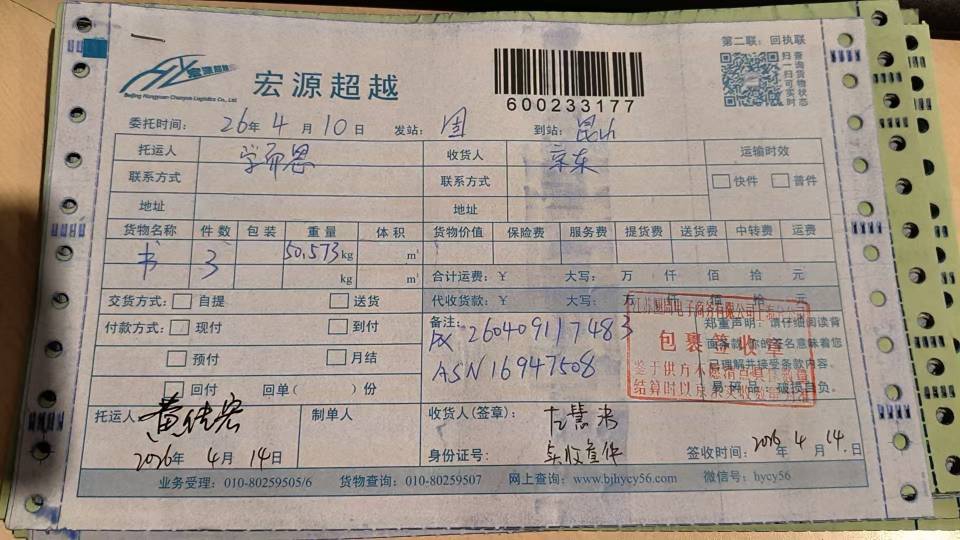 第二联：回执联
宏源超越
Beijing Hongyuan Chaoyue Logistics Co., Ltd
600233177
扫一扫 查询货物实时状态
委托时间： 26年 4月 10日 发站： 到站：昆山
托运人 学而思 收货人 京东 运输时效
联系方式 联系方式 快件 普件
地址 地址
货物名称 件数 包装 重量 体积 货物价值 保险费 服务费 提货费 送货费 中转费 运费
书 3 50.573kg m³
kg m³ 合计运费：￥ 大写： 万 仟 佰 拾 元
交货方式： 自提 送货 代收货款：￥ 大写： 万 仟 佰 拾 元
付款方式： 现付 到付 备注： 260409117483 郑重声明：请仔细阅读背
面条款，你的签名意味着您
预付 月结 ASN 16947508 理解并接受条款内容。
回付 回单（ ）份 易碎品：破损自负。
包裹签收章
托运人： 制单人 收货人（签章）：
2026年 4月 14日 身份证号： 签收时间：2026年 4月 14日
业务受理：010-80259505/6 货物查询：010-80259507 网上查询：www.bjhycy56.com 微信号：hycy56